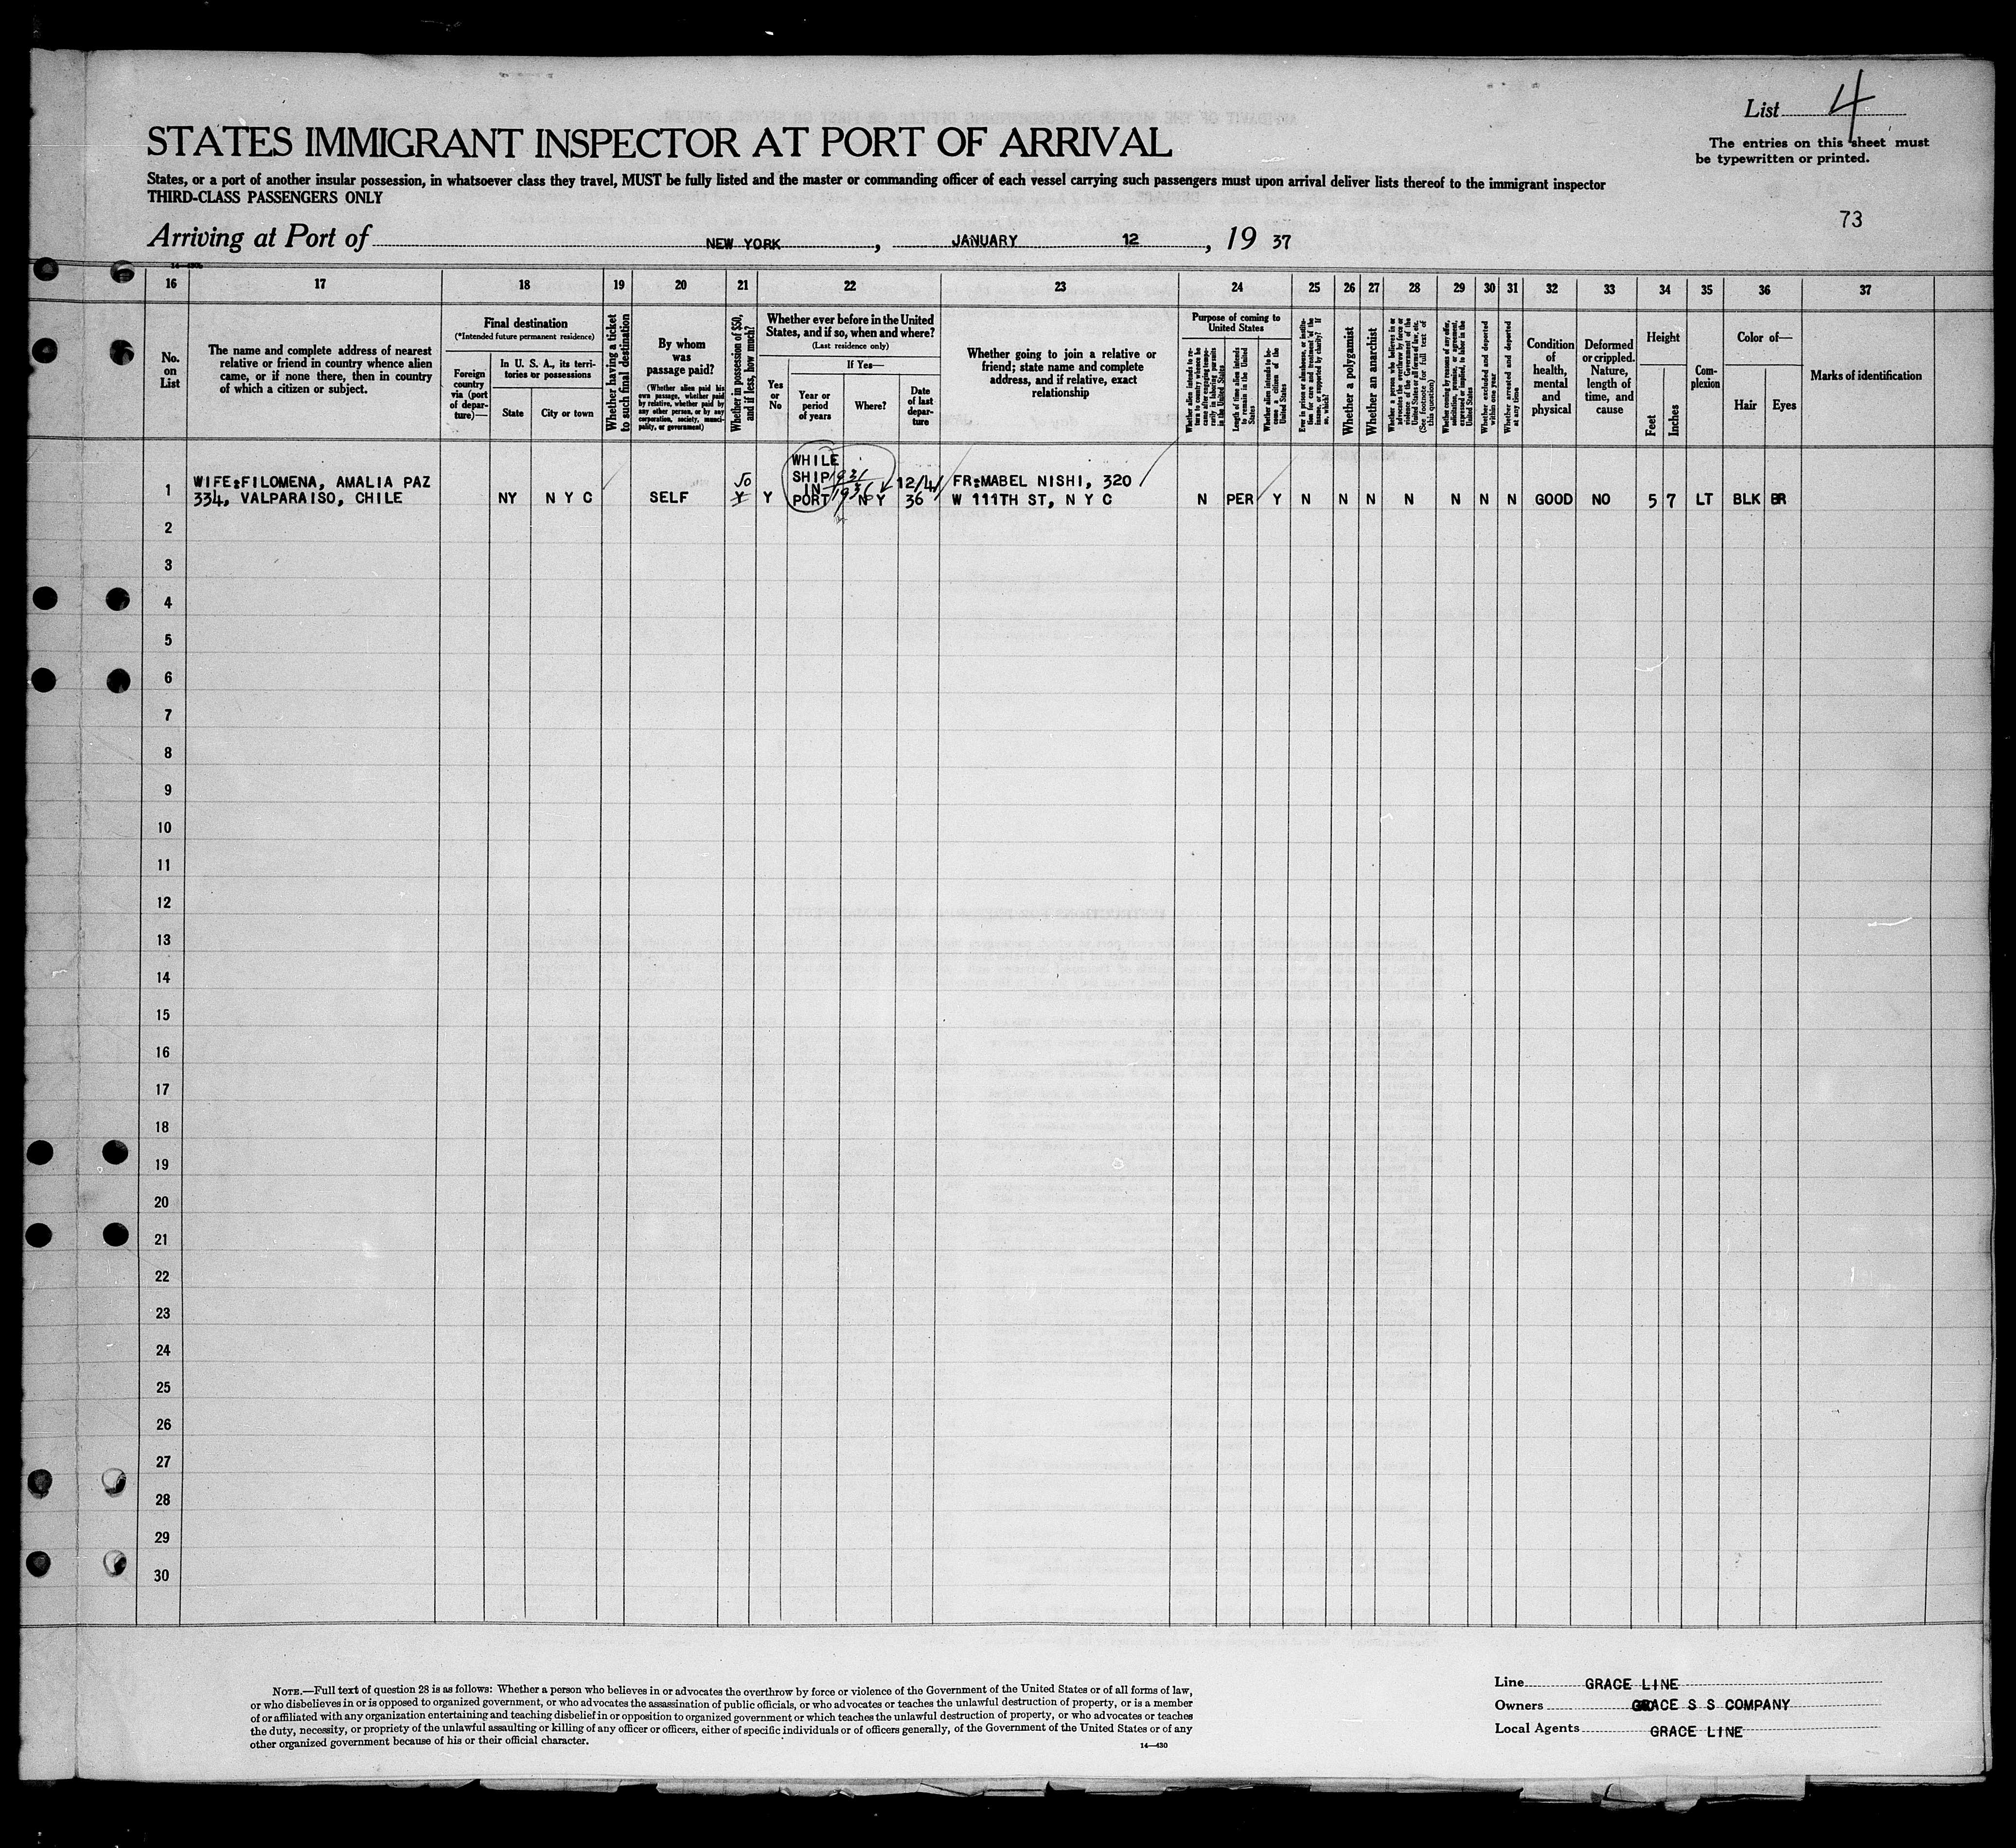 List 4
The entries on this sheet must
be typewritten or printed.
STATES IMMIGRANT INSPECTOR AT PORT OF ARRIVAL
States, or a port of another insular possession, in whatsoever class they travel, MUST be fully listed and the master or commanding officer of each vessel carrying such passengers must upon arrival deliver lists thereof to the immigrant inspector
THIRD-CLASS PASSENGERS ONLY
73
Arriving at Port of NEW YORK, JANUARY 12, 19 37
16 17 18 19 20 21 22 23 24 25 26 27 28 29 30 31 32 33 34 35 36 37
No.
on
List
The name and complete address of nearest
relative or friend in country whence alien
came, or if none there, then in country
of which a citizen or subject.
Final destination
(*Intended future permanent residence)
Foreign
country
via (port
of depar-
ture)—
In U. S. A., its terri-
tories or possessions
State
City or town
Whether having a ticket
to such final destination
By whom
was
passage paid?
(Whether alien paid his
own passage, whether paid
by relative, whether paid by
any other person, or by any
corporation, society, munici-
pality, or government)
Whether in possession of $50,
and if less, how much?
Whether ever before in the United
States, and if so, when and where?
(Last residence only)
Yes
or
No
If Yes—
Year or
period
of years
Where?
Date
of last
depar-
ture
Whether going to join a relative or
friend; state name and complete
address, and if relative, exact
relationship
Purpose of coming to
United States
Whether alien intends to re-
turn to country whence he
came after engaging tempo-
rarily in laboring pursuits
in the United States
Length of time alien intends
to remain in the United
States
Whether alien intends to be-
come a citizen of the
United States
Ever in prison or almshouse, or institu-
tion for care and treatment of the
insane, or supported by charity? If
so, which?
Whether a polygamist
Whether an anarchist
Whether a person who believes in or
advocates the overthrow by force or
violence of the Government of the
United States or all forms of law, etc.
(See footnote for full text of
this question)
Whether coming by reason of any offer,
solicitation, promise, or agreement,
expressed or implied, to labor in the
United States
Whether excluded and deported
within one year
Whether arrested and deported
at any time
Condition
of
health,
mental
and
physical
Deformed
or crippled.
Nature,
length of
time, and
cause
Height
Feet
Inches
Com-
plexion
Color of—
Hair
Eyes
Marks of identification
WHILE
SHIP
IN
PORT
1 WIFE:FILOMENA, AMALIA PAZ
334, VALPARAISO, CHILE
NY N Y C SELF 50 Y Y 1931 N Y 12/4/
36
FR:MABEL NISHI, 320
W 111TH ST, N Y C
N PER Y N N N N N N N GOOD NO 5 7 LT BLK BR
2
3
4
5
6
7
8
9
10
11
12
13
14
15
16
17
18
19
20
21
22
23
24
25
26
27
28
29
30
NOTE.—Full text of question 28 is as follows: Whether a person who believes in or advocates the overthrow by force or violence of the Government of the United States or of all forms of law,
or who disbelieves in or is opposed to organized government, or who advocates the assassination of public officials, or who advocates or teaches the unlawful destruction of property, or is a member
of or affiliated with any organization entertaining and teaching disbelief in or opposition to organized government or which teaches the unlawful destruction of property, or who advocates or teaches
the duty, necessity, or propriety of the unlawful assaulting or killing of any officer or officers, either of specific individuals or of officers generally, of the Government of the United States or of any
other organized government because of his or their official character.
14—430
Line GRACE LINE
Owners GRACE S S COMPANY
Local Agents GRACE LINE